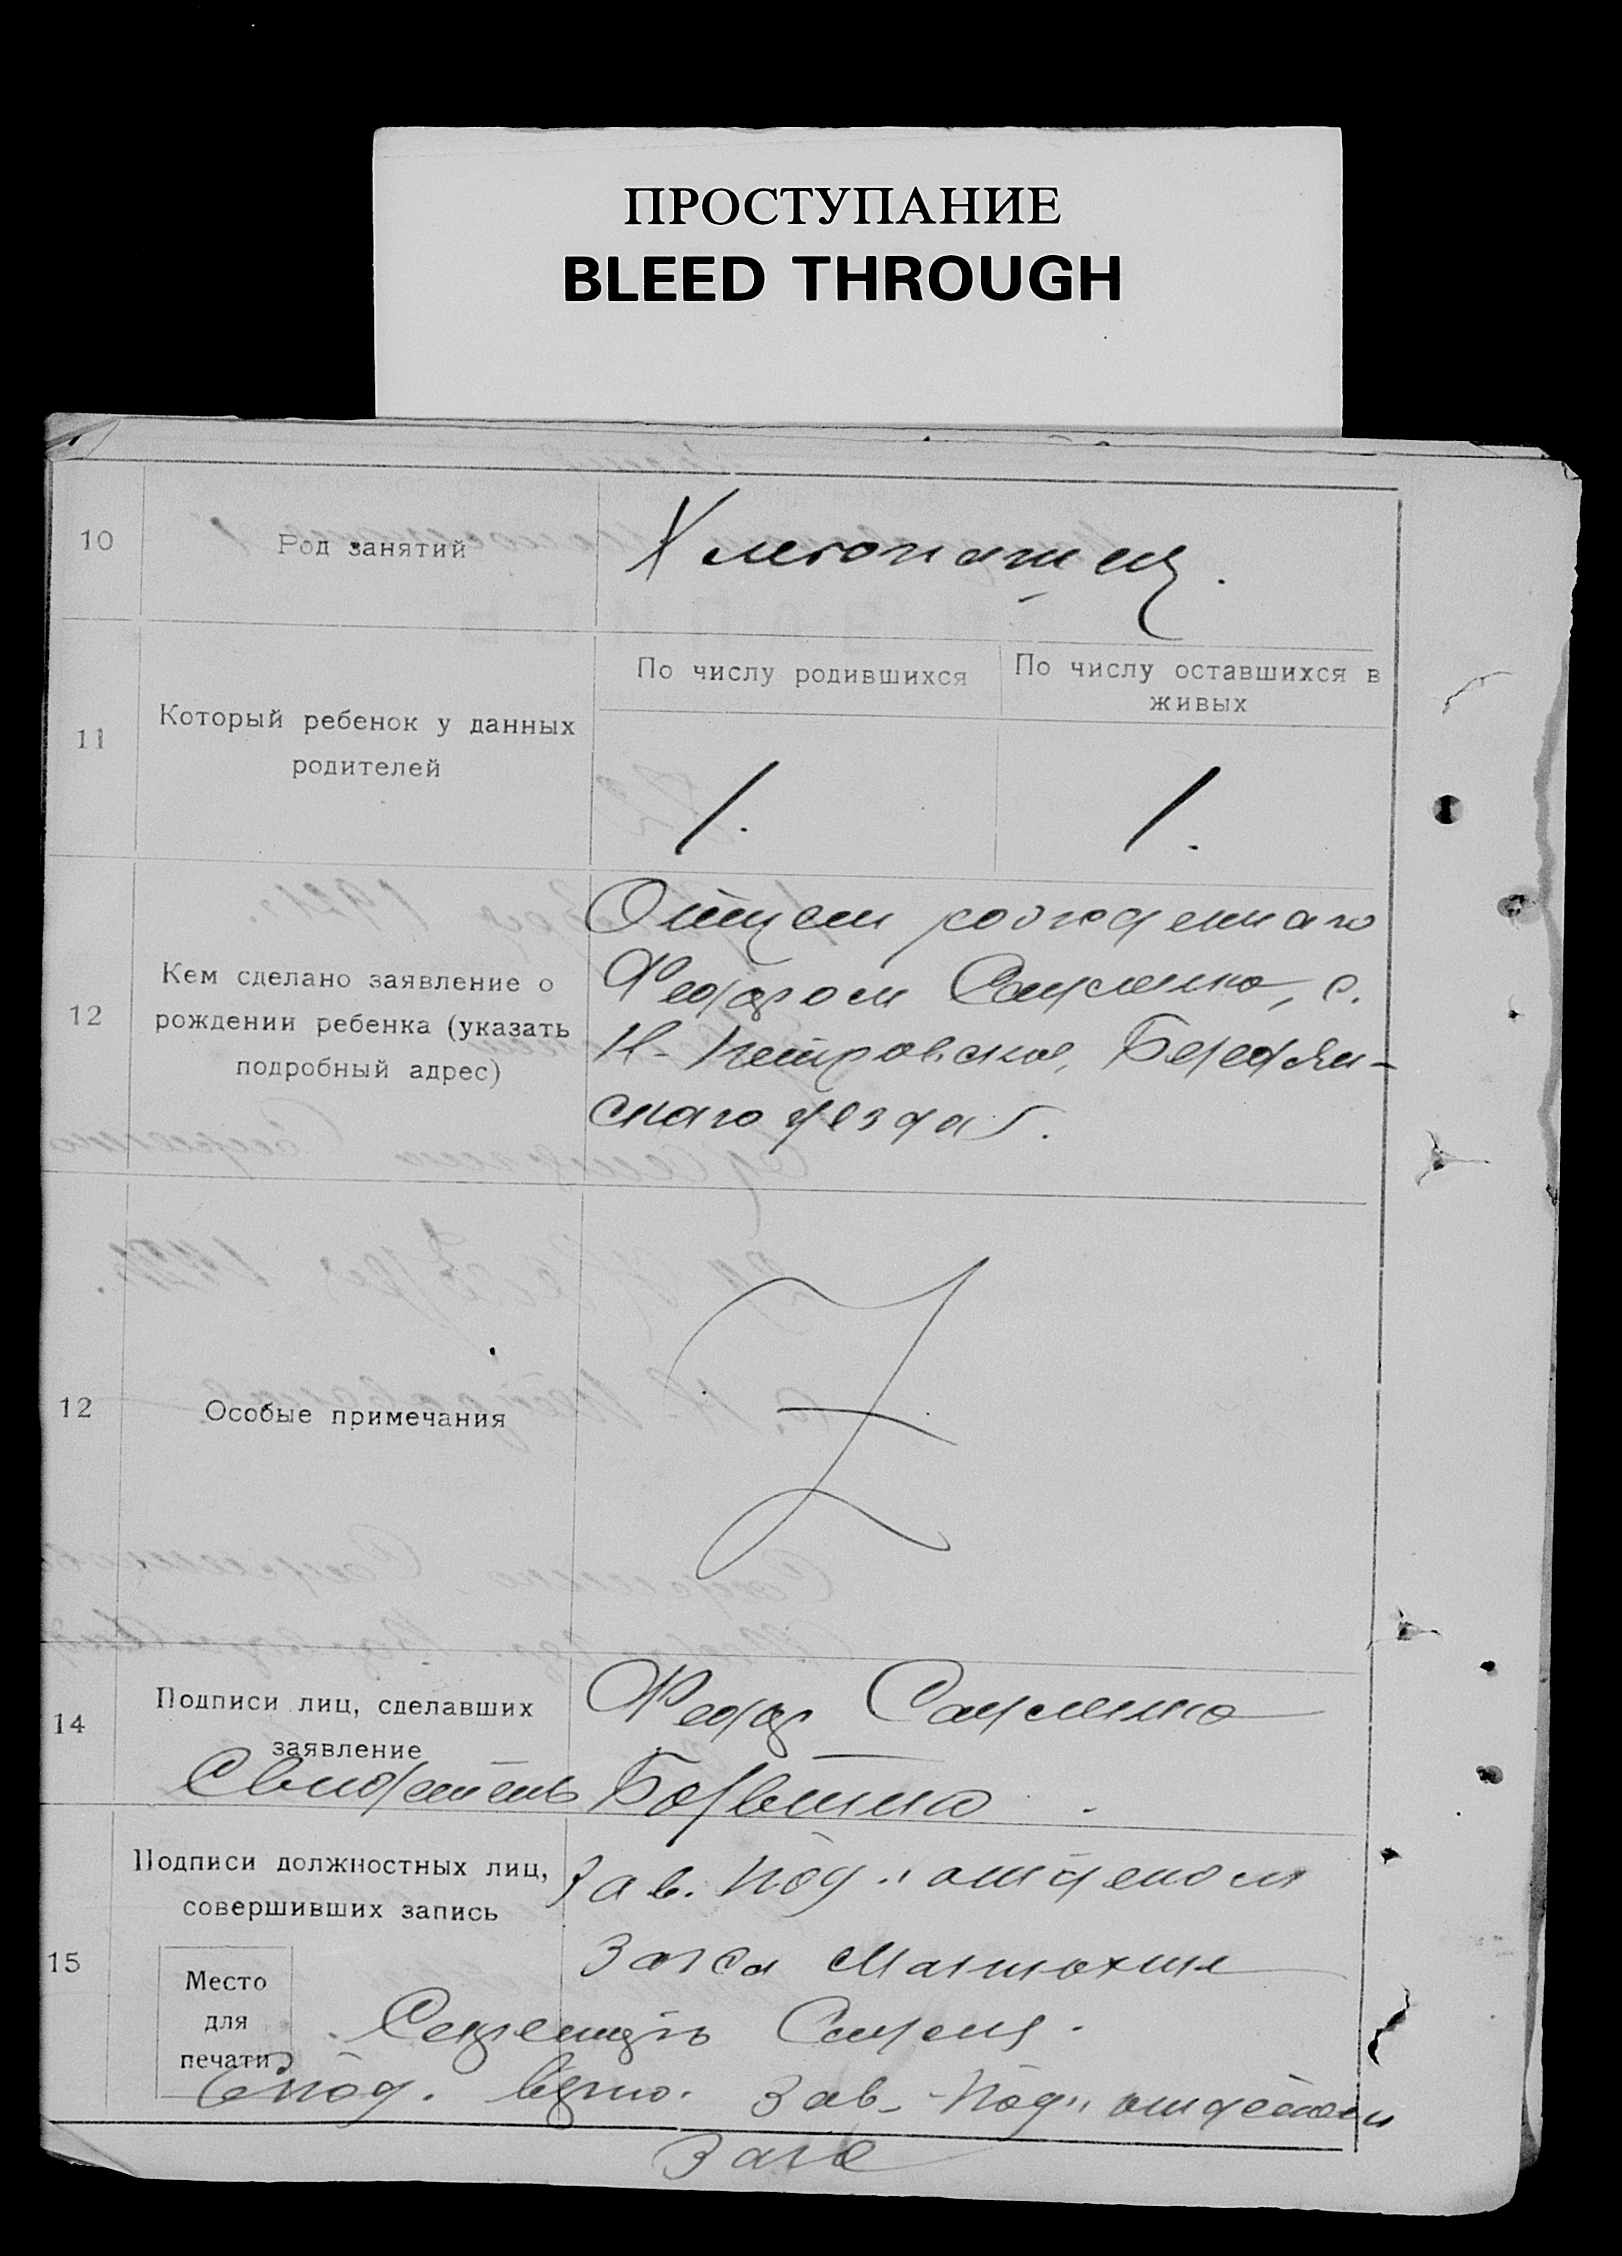 ПРОСТУПАНИЕ
BLEED THROUGH
10
Род занятий
Хлебопашец.
11
Который ребенок у данных
родителей
По числу родившихся
По числу оставшихся в
живых
1.
1.
12
Кем сделано заявление о
рождении ребенка (указать
подробный адрес)
Отцем рожденнаго
Федором, с.
Н-Петровское, Бердян-
скаго уезда
12
Особые примечания
14
Подписи лиц, сделавших
заявление
Федор
Свидетель
15
Подписи должностных лиц,
совершивших запись
Место
для
печати
Зав. Под. отделом
Загса Мантохин
Секретарь
С под. верно. Зав. Под. отделом
Загс